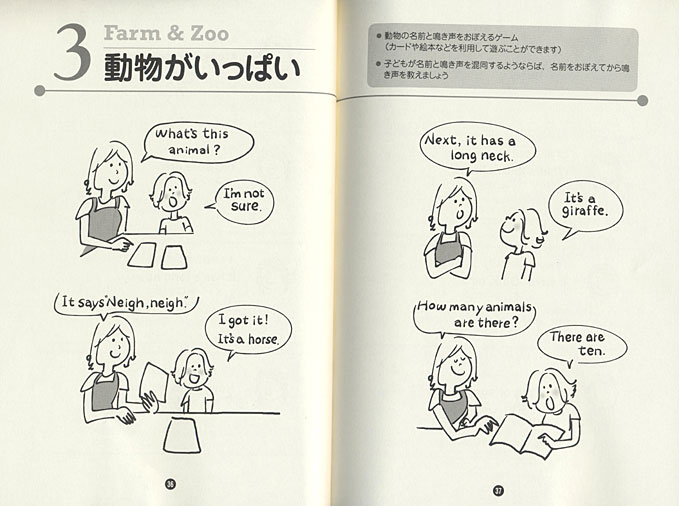 3
Farm & Zoo
動物がいっぱい
What's this
animal?
I'm not
sure.
It says "Neigh, neigh."
I got it!
It's a horse.
36
● 動物の名前と鳴き声をおぼえるゲーム
（カードや絵本などを利用して遊ぶことができます）
● 子どもが名前と鳴き声を混同するようならば、名前をおぼえてから鳴
き声を教えましょう
Next, it has a
long neck.
It's a
giraffe.
How many animals
are there?
There are
ten.
37